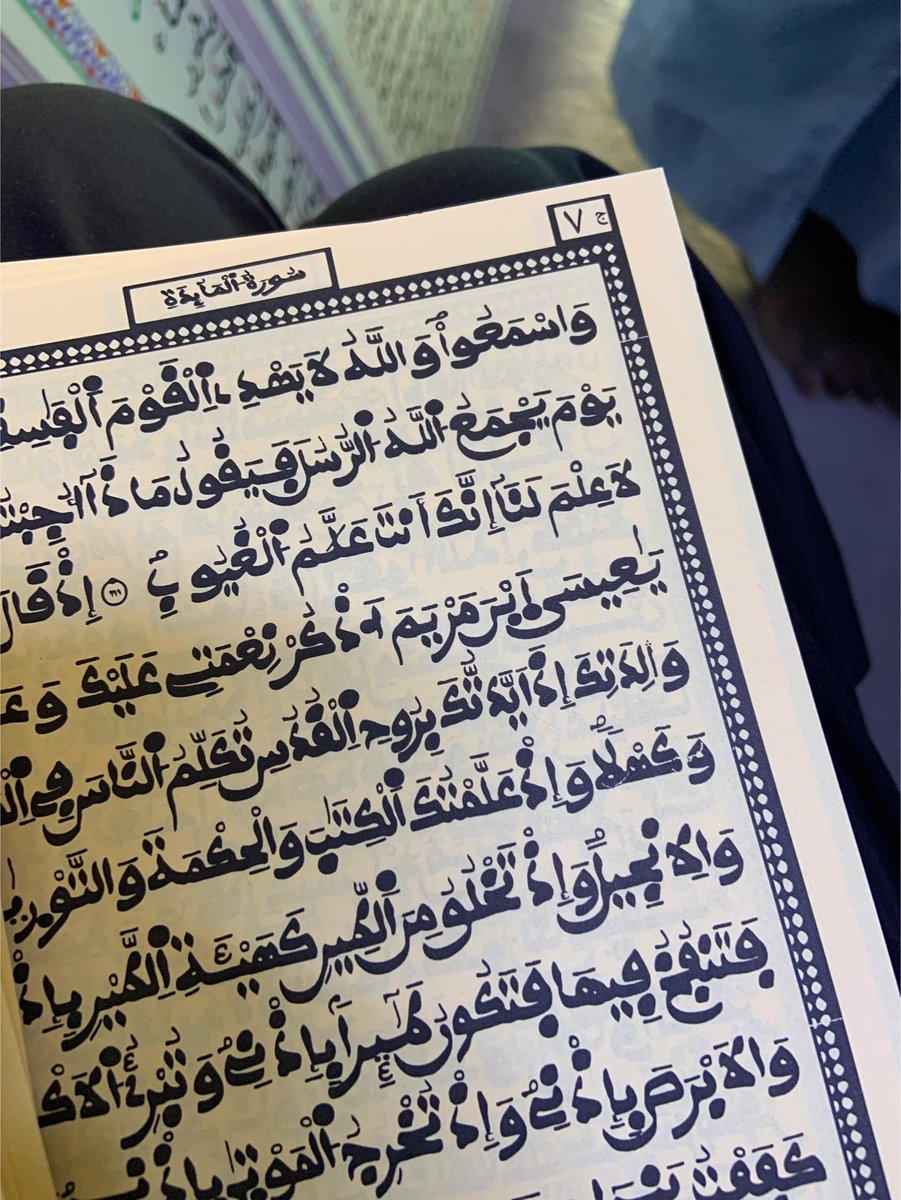 ج ٧
سورة المايدة
وَاسْمَعُواْ وَاللَّهُ لَا يَهْدِے اِلْقَوْمَ اَلْفَٰسِفِ
يَوْمَ يَجْمَعُ اُللَّهُ اُلرُّسُلَ فَيَقُولُ مَاذَآ أُجِبْتُ
لَا عِلْمَ لَنَآ إِنَّكَ أَنتَ عَلَّٰمُ اُلْغُيُوبِ ١١١ إِذْ قَالَ
يَٰعِيسَى اَبْنَ مَرْيَمَ اَذْكُرْ نِعْمَتِے عَلَيْكَ وَعَ
وَٰلِدَتِكَ إِذْ أَيَّدتُّكَ بِرُوحِ اِلْقُدُسِ تُكَلِّمُ اُلنَّاسَ فِے اِلْ
وَكَهْلاٗ وَإِذْ عَلَّمْتُكَ اَلْكِتَٰبَ وَالْحِكْمَةَ وَالتَّوْرٜيٰ
وَالِانجِيلَ وَإِذْ تَخْلُقُ مِنَ اَلطِّينِ كَهَيْـَٔةِ اِلطَّيْرِ بِإِذْ
فَتَنفُخُ فِيهَا فَتَكُونُ طَٰٓئِراَۢ بِإِذْنِے وَتُبْرِئُ اُلَاكْ
وَالَابْرَصَ بِإِذْنِے وَإِذْ تُخْرِجُ اُلْمَوْتٜيٰ بِإِذْنِے
كَفَفْتُ بَنِے